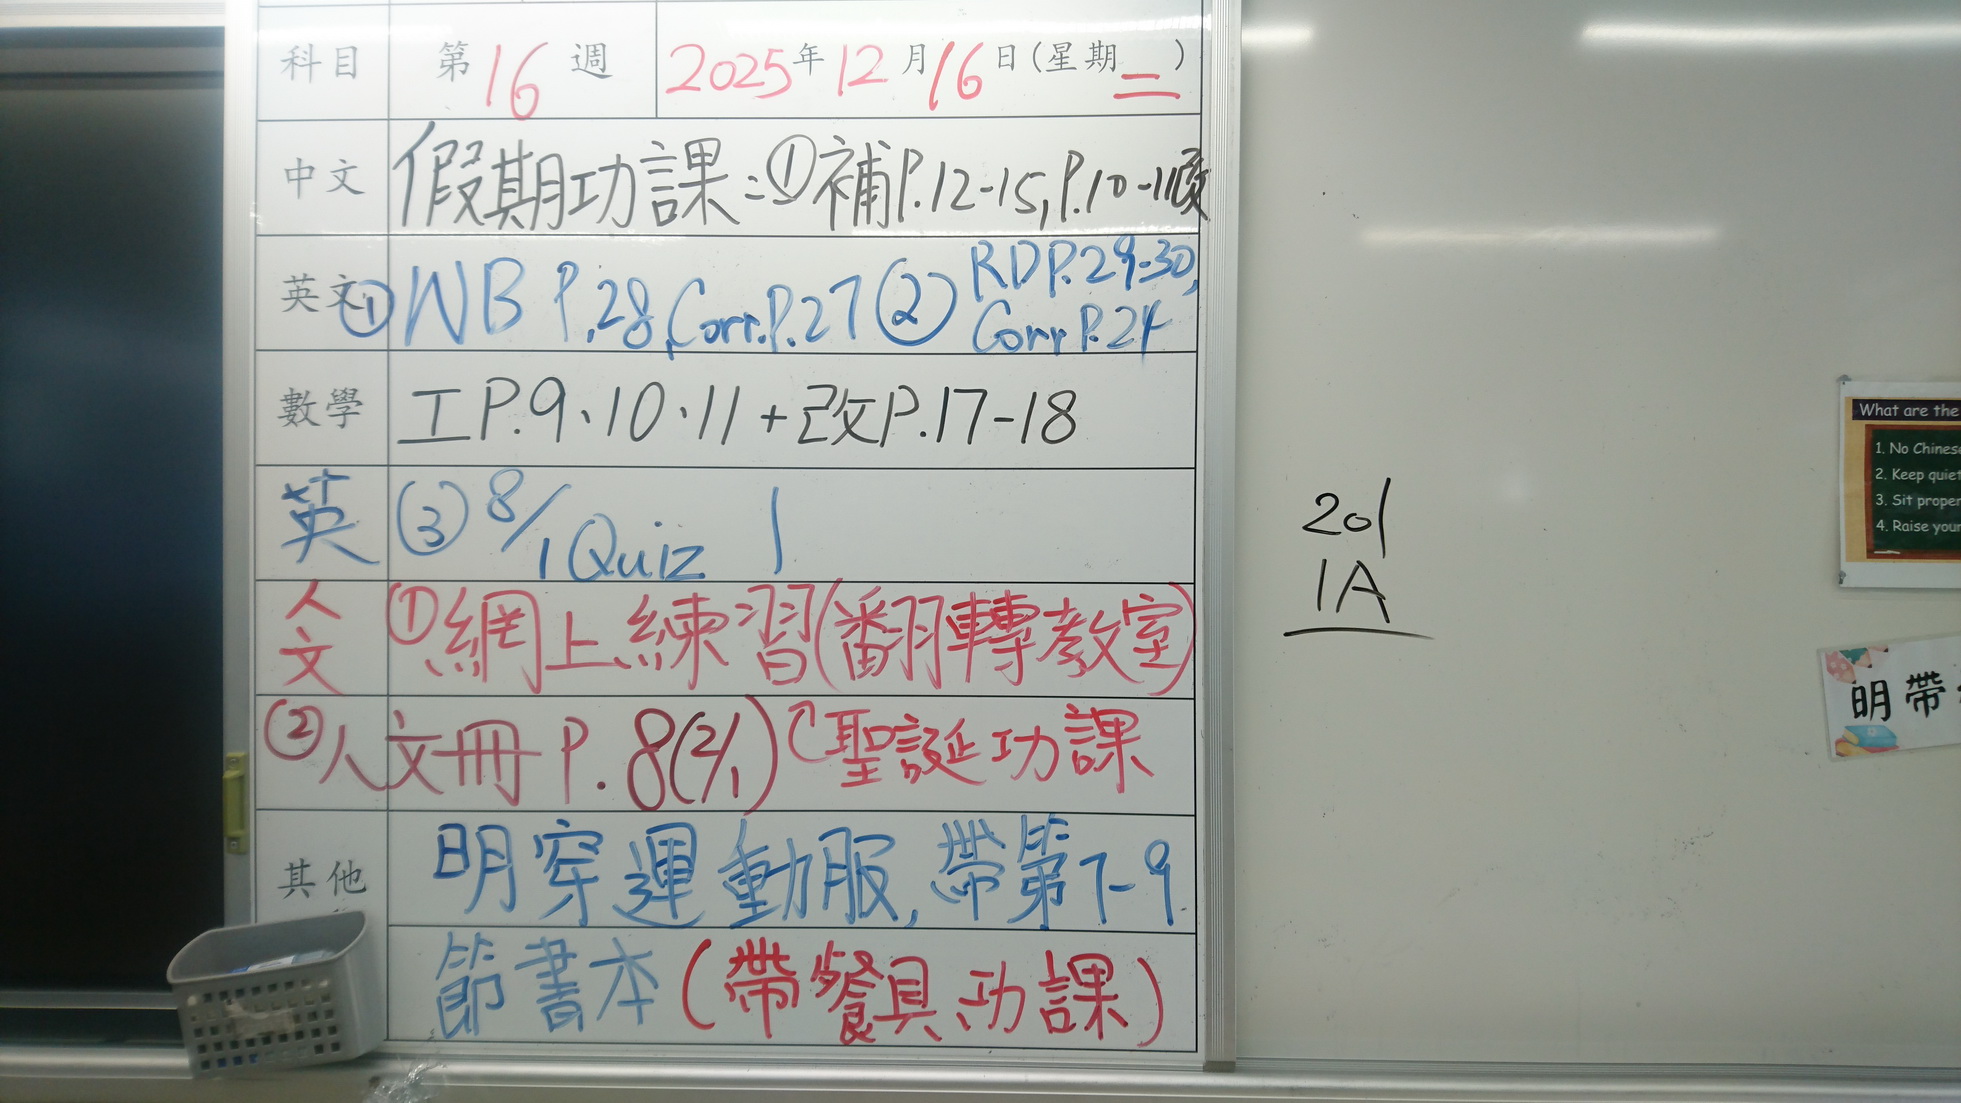 科目 第16週 2025年12月16日(星期二)
中文 假期功課:①補P.12-15,P.10-11版
英文 ①WB P.28,Corr.P.27 ② RD P.29-30,
Corr P.24
數學 工P.9、10、11+改P.17-18
英 ③ 8/1 Quiz 1
人文 ①網上練習(翻轉教室)
②人文冊 P.8(2/1) 聖誕功課
其他 明穿運動服,帶第7-9
節書本(帶餐具功課)
201
1A
What are the
1. No Chinese
2. Keep quiet
3. Sit proper
4. Raise your
明帶